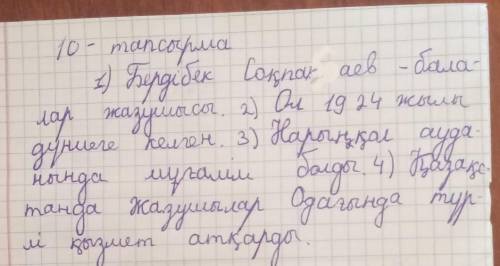 10 - тапсырма
1) Бердібек Соқпақ аев - бала-
лар жазушысы. 2) Ол 1924 жылы
дүниеге келген. 3) Нарынқол ауда-
нында мұғалім болды. 4) Қазақс-
танда Жазушылар Одағында түр-
лі қызмет атқарды.